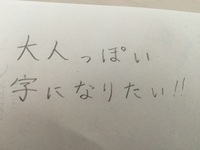 大人っぽい
字になりたい!!